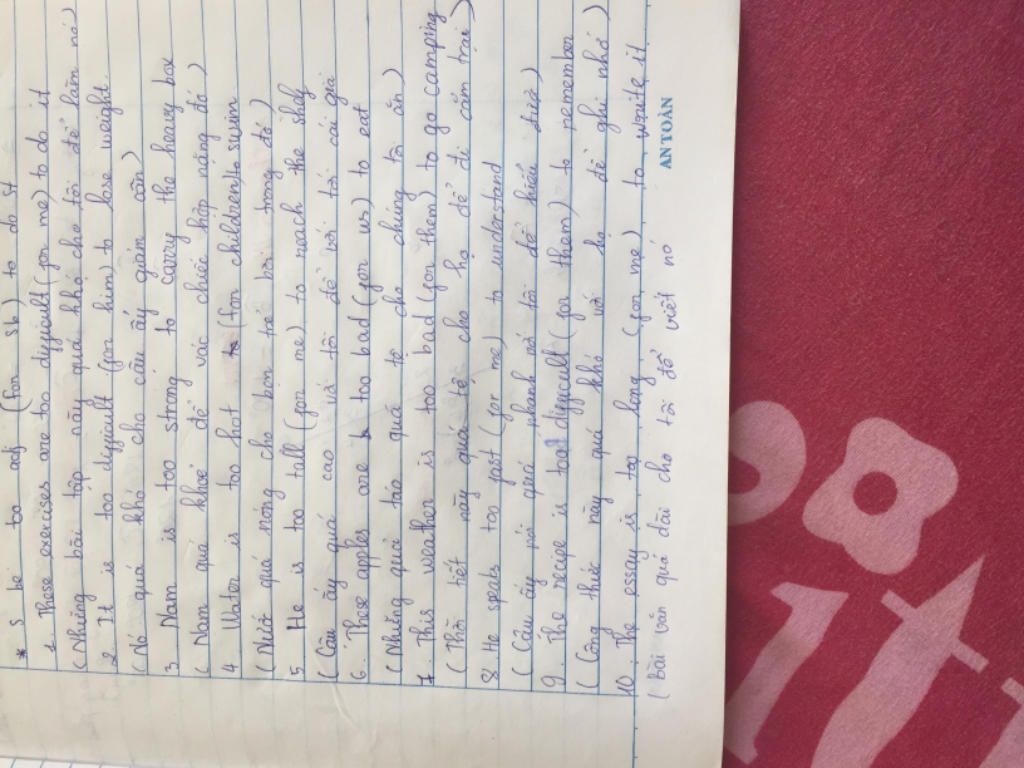 * S be too adj (for sb) to do st
1. These exercises are too difficult (for me) to do it
( Những bài tập này quá khó cho tôi để làm nó )
2 It is too difficult (for him) to lose weight.
( Nó quá khó cho cậu ấy giảm cân )
3 Nam is too strong to carry the heavy box
( Nam quá khoẻ để vác chiếc hộp nặng đó )
4 Water is too hot (for children) to swim
( Nước quá nóng cho bọn trẻ bơi trong đó )
5 He is too tall (for me) to reach the shelf
( Cậu ấy quá cao với tôi để với tới cái giá
6. Those apples are too bad (for us) to eat
( Những quả táo quá tệ cho chúng ta ăn )
7. This weather is too bad (for them) to go camping
( Thời tiết này quá tệ cho họ để đi cắm trại )
8. He speats too fast (for me) to understand
( Cậu ấy nói quá nhanh nó tôi để hiểu được )
9. The recipe is too difficult (for them) to remember
( Công thức này quá khó với họ để ghi nhớ )
10. The essay is too long (for me) to waite it.
( bài văn quá dài cho tôi để viết nó
AN TOÀN